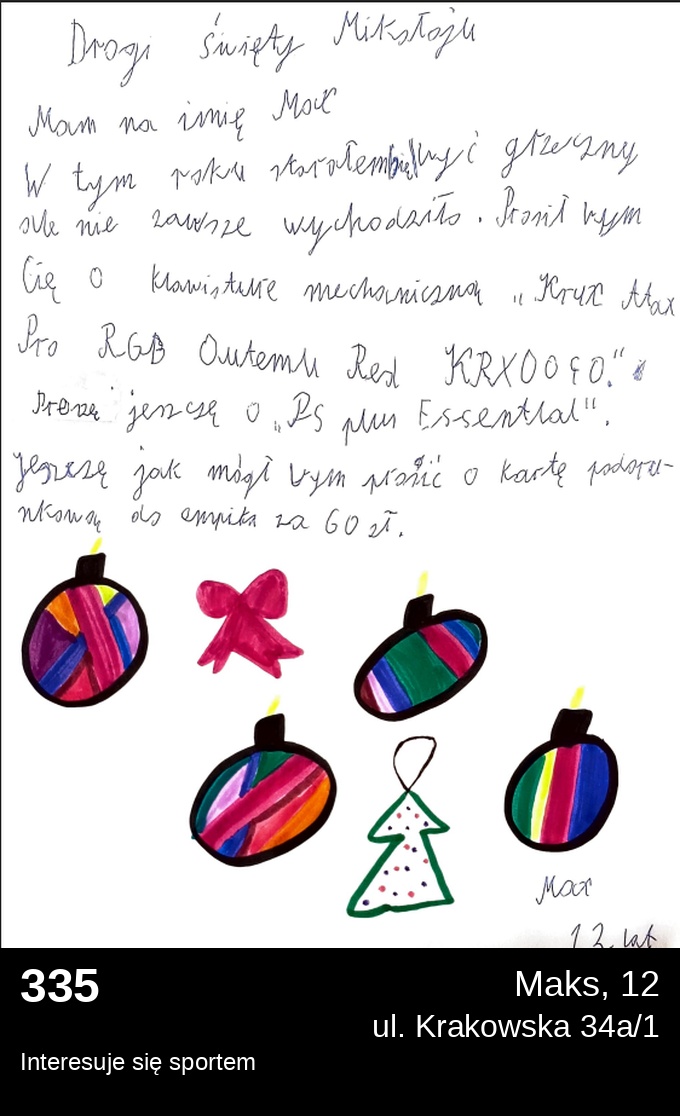 Drogi święty Mikołaju
Mam na imię Max
W tym roku starałem być grzeczny
ale nie zawsze wychodziło. Prosił bym
Cię o klawiature mechaniczną „Krux Atax
Pro RGB Outemu Red KRX0090."
Proszę jeszczę o „PS plus Essential".
jeszczę jak mógł bym prosić o kartę podaru-
nkową do empika za 60 zł.
Max
12 lat
335
Maks, 12
ul. Krakowska 34a/1
Interesuje się sportem